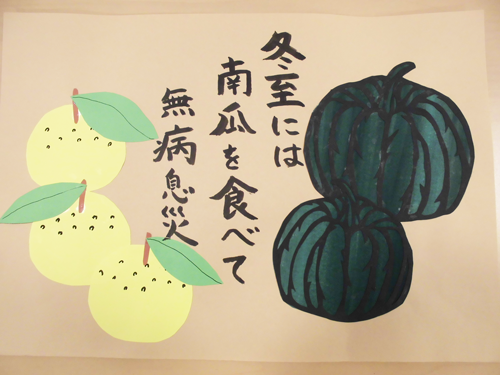 冬至には
南瓜を食べて
無病息災